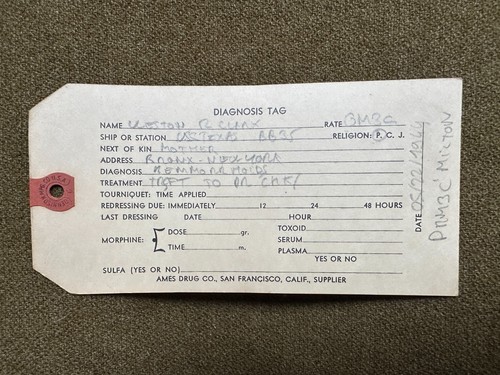 DIAGNOSIS TAG
NAME RATE BM3C
SHIP OR STATION USTEXAS BB35 RELIGION: P. C. J.
NEXT OF KIN MOTHER
ADDRESS BRONX - NEW YORK
DIAGNOSIS
TREATMENT
TOURNIQUET: TIME APPLIED
REDRESSING DUE: IMMEDIATELY 12 24 48 HOURS
LAST DRESSING DATE HOUR
MORPHINE: DOSE gr. TOXOID
TIME m. SERUM
PLASMA
YES OR NO
SULFA (YES OR NO)
AMES DRUG CO., SAN FRANCISCO, CALIF., SUPPLIER
DATE 05/22/1944
MILTON